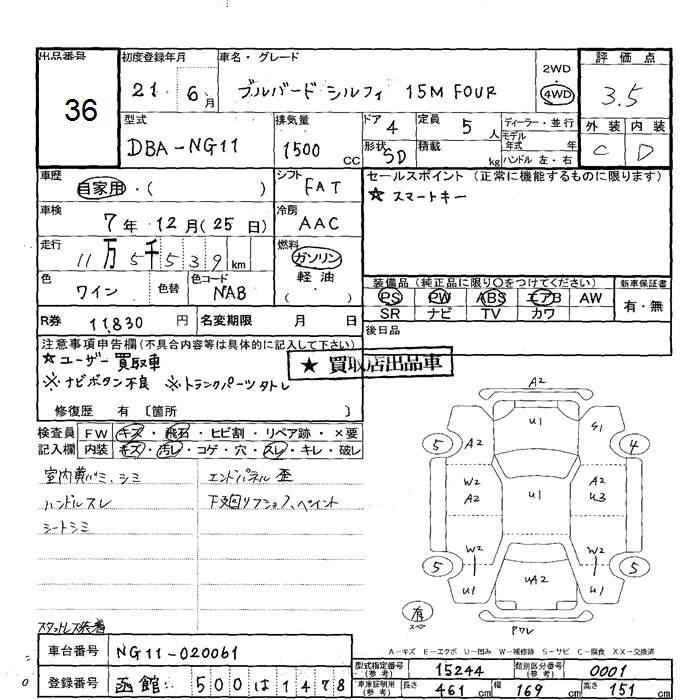 出品番号 初度登録年月 車名・グレード 2WD 評価点
36 21 6月 ブルバード シルフィ 15M FOUR ・4WD 3.5
型式 排気量 ドア 4 定員 5人 ディーラー・並行 外装 内装
DBA-NG11 1500 CC 形状 SD 積載 kg モデル年式 年 C D
ハンドル 左・右
車歴 自家用・( ) シフト FAT セールスポイント (正常に機能するものに限ります)
☆ スマートキー
車検 7年 12月(25日) 冷房 AAC
走行 11万5千539km 燃料 ガソリン
軽油・
( )
色 ワイン 色替 色コード NAB 装備品 (純正品に限り○をつけてください) 新車保証書
PS PW ABS エアB AW 有・無
SR ナビ TV カワ
R券 11,830円 名変期限 月 日 後日品
注意事項申告欄(不具合内容等は具体的に記入して下さい)
☆ユーザー買取車 ★ 買取店出品車
※ナビボタン不良 ※トランクパーツタトレ
修復歴 有 〔箇所 〕
検査員 FW キズ・飛石・ヒビ割・リペア跡・×要
記入欄 内装 キズ・汚レ・コゲ・穴・スレ・キレ・破レ
室内黄バミ、シミ エンドパネル歪
ハンドルスレ 下廻リフショク、ペイント
シートシミ
A2
U1 S1
5 A2 4
W2 A2 U1 A2 U3
W2 W2
5 U1 UA2 U1 5
有 スペア Pワレ
スタットレス装着
A-キズ E-エクボ U-凹み W-補修跡 S-サビ C-腐食 XX-交換済
車台番号 NG11-020061
型式指定番号(参考) 15244 類別区分番号(参考) 0001
登録番号 函館 500は1478
車庫証明用(参考) 長さ 461cm 幅 169cm 高さ 151cm